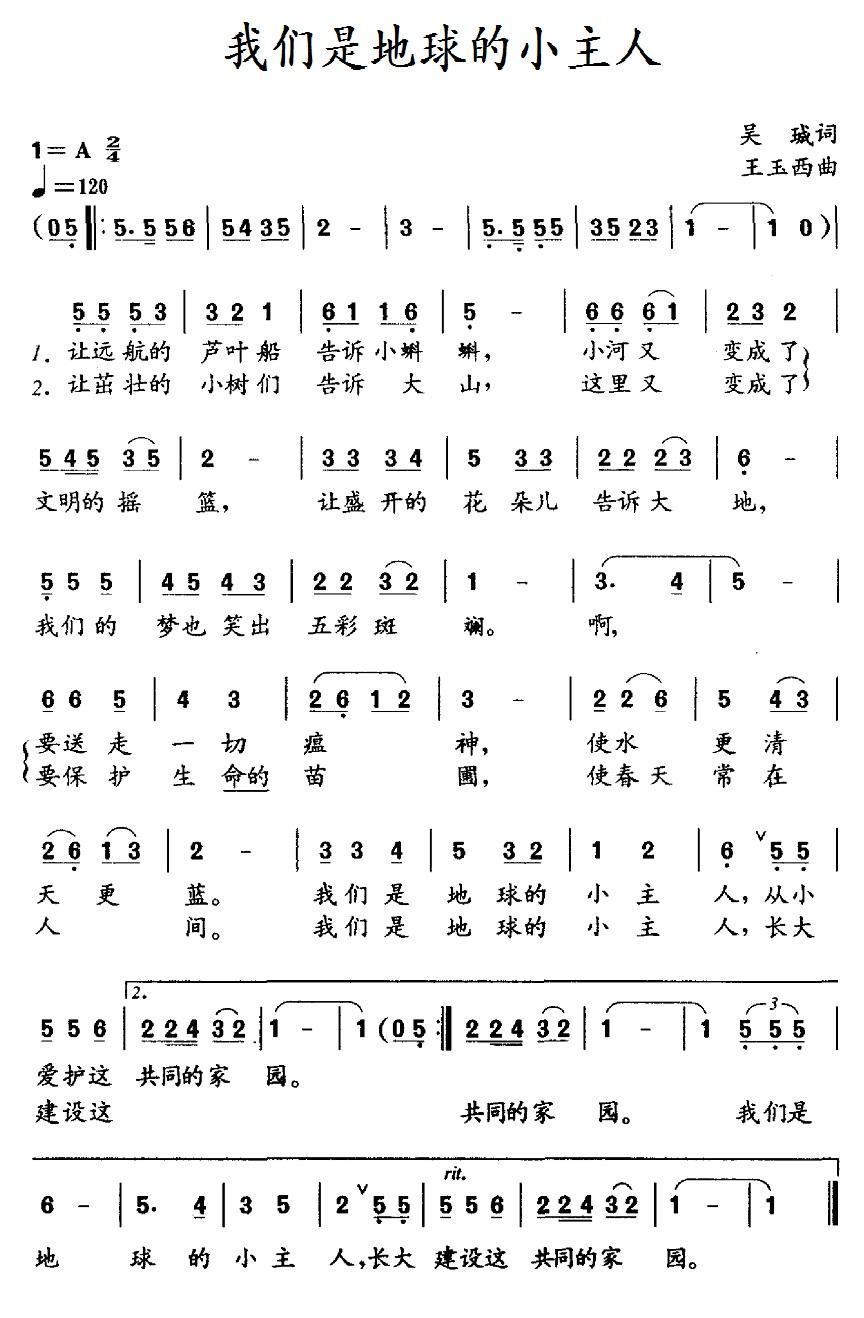 我们是地球的小主人
1= A 2/4
♩=120
吴 瑊词
王玉西曲
(05 ‖: 5. 5 556 | 5435 | 2 - | 3 - | 5. 5 55 | 3523 | 1 - | 1 0 )|
5 5 5 3 | 3 2 1 | 6 1 1 6 | 5 - | 6 6 6 1 | 2 3 2 |
1. 让远航的 芦叶船 告诉小蝌 蝌, 小河又 变成了
2. 让茁壮的 小树们 告诉 大 山, 这里又 变成了
5 4 5 3 5 | 2 - | 3 3 3 4 | 5 3 3 | 2 2 2 3 | 6 - |
文明的摇 篮, 让盛开的 花 朵儿 告诉大 地,
5 5 5 | 4 5 4 3 | 2 2 3 2 | 1 - | 3. 4 | 5 - |
我们的 梦也笑出 五彩斑 斓。 啊,
6 6 5 | 4 3 | 2 6 1 2 | 3 - | 2 2 6 | 5 4 3 |
要送走 一切 瘟 神, 使水 更清
要保护 生命的 苗 圃, 使春天 常在
2 6 1 3 | 2 - | 3 3 4 | 5 3 2 | 1 2 | 6 ∨ 5 5 |
天 更 蓝。 我们是 地 球的 小 主 人, 从小
人 间。 我们是 地 球的 小 主 人, 长大
2.
5 5 6 | 2 2 4 3 2 | 1 - | 1 ( 0 5 :‖ 2 2 4 3 2 | 1 - | 1 5 5 5 |
3
爱护这 共同的家 园。
建设这 共同的家 园。 我们是
rit.
6 - | 5. 4 | 3 5 | 2 ∨ 5 5 | 5 5 6 | 2 2 4 3 2 | 1 - | 1 ‖
地 球 的 小 主 人, 长大 建设这 共同的家 园。